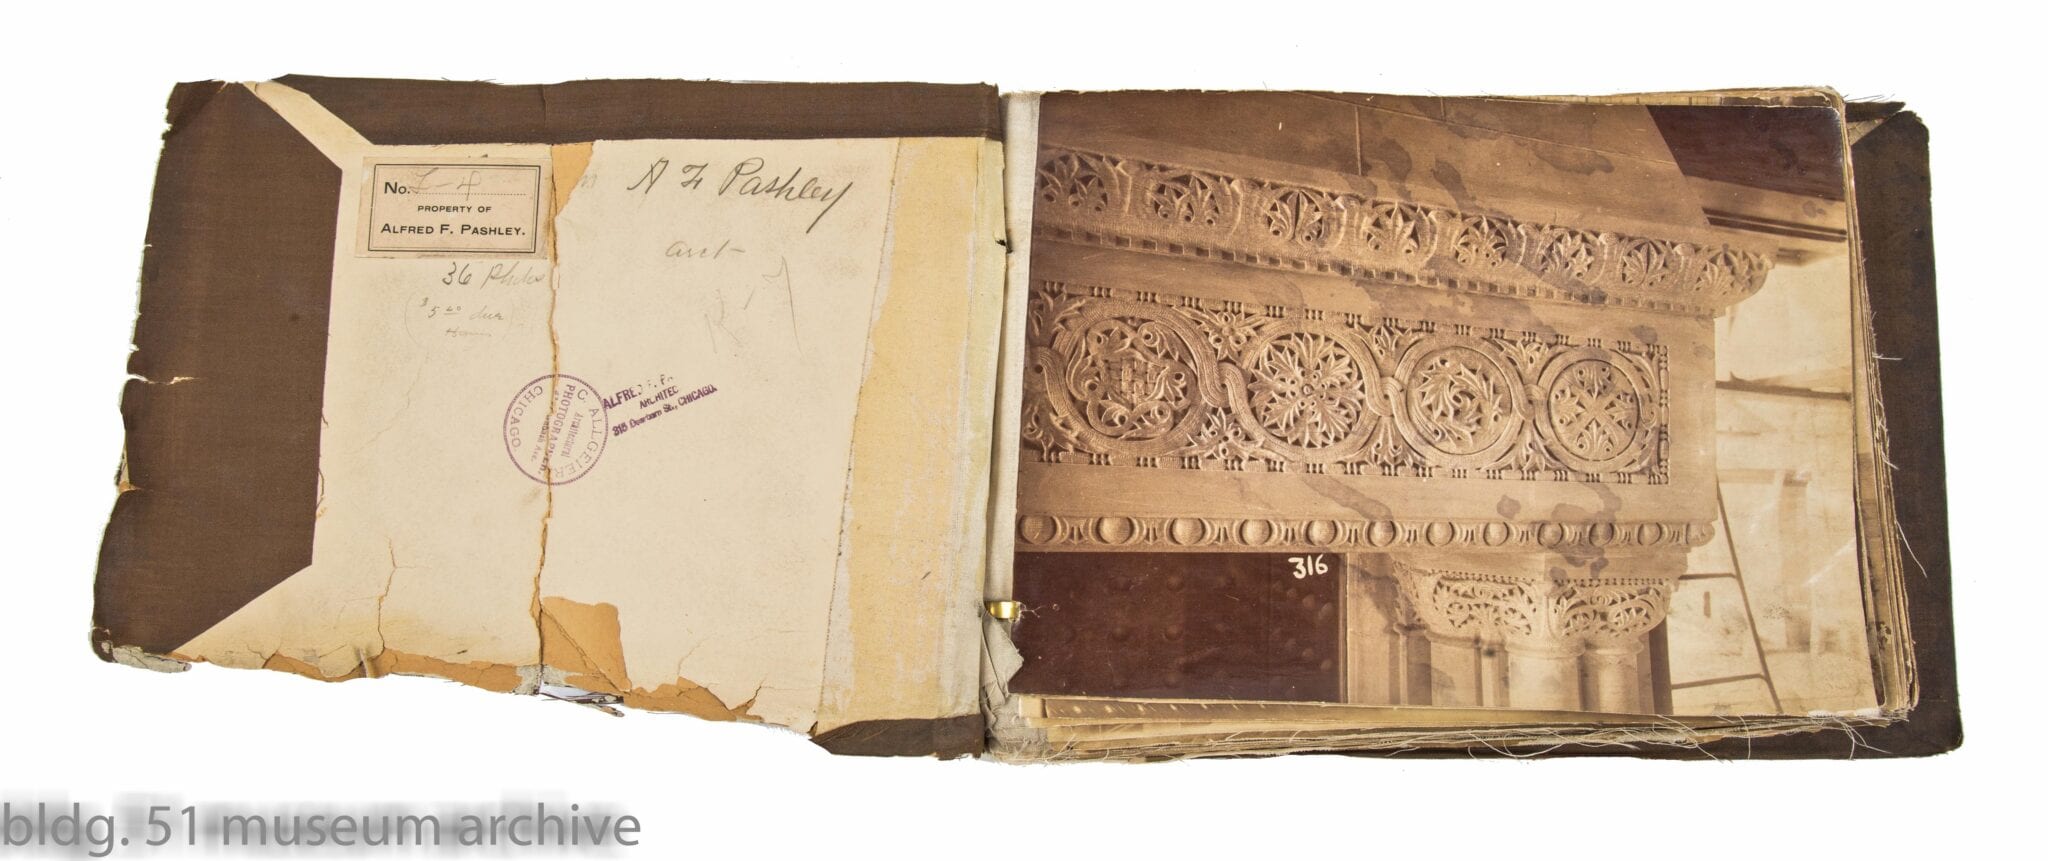 No. L-4
PROPERTY OF
ALFRED F. PASHLEY.
A F Pashley
arct
36 Photos
($5.00 due
C. ALLGEIER
Architectural
PHOTOGRAPHER
CHICAGO.
ALFRED F. PA
ARCHITEC
315 Dearborn St., CHICAGO.
316
bldg. 51 museum archive